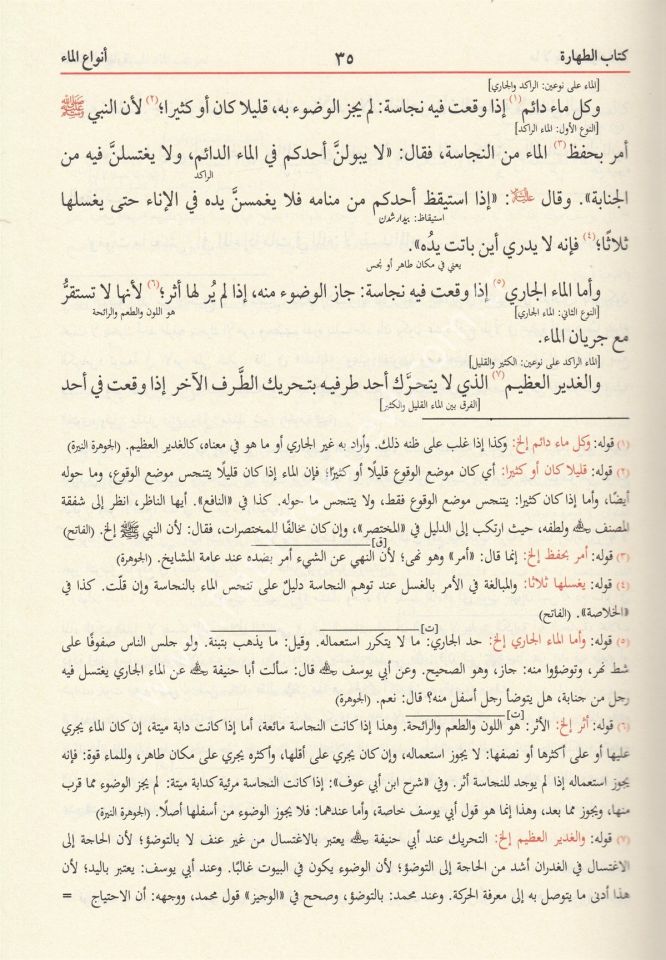 كتاب الطهارة ٣٥ أنواع الماء
[الماء على نوعين: الراكد والجاري]
وكل ماء دائم(١) إذا وقعت فيه نجاسة: لم يجز الوضوء به، قليلا كان أو كثيرا؛(٢) لأن النبي ﷺ
[النوع الأول: الماء الراكد]
أمر بحفظ(٣) الماء من النجاسة، فقال: «لا يبولنَّ أحدكم في الماء الدائم، ولا يغتسلنَّ فيه من
الراكد
الجنابة». وقال ﷺ: «إذا استيقظ أحدكم من منامه فلا يغمسنَّ يده في الإناء حتى يغسلها
استيقاظ: بيدار شدن
ثلاثًا؛(٤) فإنه لا يدري أين باتت يدُه».
يعني في مكان طاهر أو نجس
وأما الماء الجاري(٥) إذا وقعت فيه نجاسة: جاز الوضوء منه، إذا لم يُر لها أثر؛(٦) لأنها لا تستقرُّ
[النوع الثاني: الماء الجاري] هو اللون والطعم والرائحة
مع جريان الماء.
[الماء الراكد على نوعين: الكثير والقليل]
والغدير العظيم(٧) الذي لا يتحرَّك أحد طرفيه بتحريك الطَّرف الآخر إذا وقعت في أحد
[الفرق بين الماء القليل والكثير]
(١) قوله: وكل ماء دائم إلخ: وكذا إذا غلب على ظنه ذلك. وأراد به غير الجاري أو ما هو في معناه، كالغدير العظيم. (الجوهرة النيرة)
(٢) قوله: قليلا كان أو كثيرا: أي كان موضع الوقوع قليلًا أو كثيرًا؛ فإن الماء إذا كان قليلًا يتنجس موضع الوقوع، وما حوله
أيضًا، وأما إذا كان كثيرا: يتنجس موضع الوقوع فقط، ولا يتنجس ما حوله. كذا في «النافع». أيها الناظر، انظر إلى شفقة
المصنف ﵀ ولطفه، حيث ارتكب إلى الدليل في «المختصر»، وإن كان مخالفًا للمختصرات، فقال: لأن النبي ﷺ إلخ. (الفاتح)
[ق]
(٣) قوله: أمر بحفظ إلخ: إنما قال: «أمر» وهو نهى؛ لأن النهي عن الشيء أمر بضده عند عامة المشايخ. (الجوهرة)
(٤) قوله: يغسلها ثلاثا: والمبالغة في الأمر بالغسل عند توهم النجاسة دليلٌ على تنجس الماء بالنجاسة وإن قلّت. كذا في
«الخلاصة». (الفاتح)
[ت]
(٥) قوله: وأما الماء الجاري إلخ: حد الجاري: ما لا يتكرر استعماله. وقيل: ما يذهب بتبنة. ولو جلس الناس صفوفًا على
شط نهر، وتوضؤوا منه: جاز، وهو الصحيح. وعن أبي يوسف ﵀ قال: سألت أبا حنيفة ﵀ عن الماء الجاري يغتسل فيه
رجل من جنابة، هل يتوضأ رجل أسفل منه؟ قال: نعم. (الجوهرة)
[ت]
(٦) قوله: أثر إلخ: الأثر: هو اللون والطعم والرائحة. وهذا إذا كانت النجاسة مائعة، أما إذا كانت دابة ميتة، إن كان الماء يجري
عليها أو على أكثرها أو نصفها: لا يجوز استعماله، وإن كان يجري على أقلها، وأكثره يجري على مكان طاهر، وللماء قوة: فإنه
يجوز استعماله إذا لم يوجد للنجاسة أثر. وفي «شرح ابن أبي عوف»: إذا كانت النجاسة مرئية كدابة ميتة: لم يجز الوضوء مما قرب
منها، ويجوز مما بعد، وهذا إنما هو قول أبي يوسف خاصة، وأما عندهما: فلا يجوز الوضوء من أسفلها أصلًا. (الجوهرة النيرة)
(٧) قوله: والغدير العظيم إلخ: التحريك عند أبي حنيفة ﵀ يعتبر بالاغتسال من غير عنف لا بالتوضؤ؛ لأن الحاجة إلى
الاغتسال في الغدران أشد من الحاجة إلى التوضؤ؛ لأن الوضوء يكون في البيوت غالبًا. وعند أبي يوسف: يعتبر باليد؛ لأن
هذا أدنى ما يتوصل به إلى معرفة الحركة. وعند محمد: بالتوضؤ، وصحح في «الوجيز» قول محمد، ووجهه: أن الاحتياج =